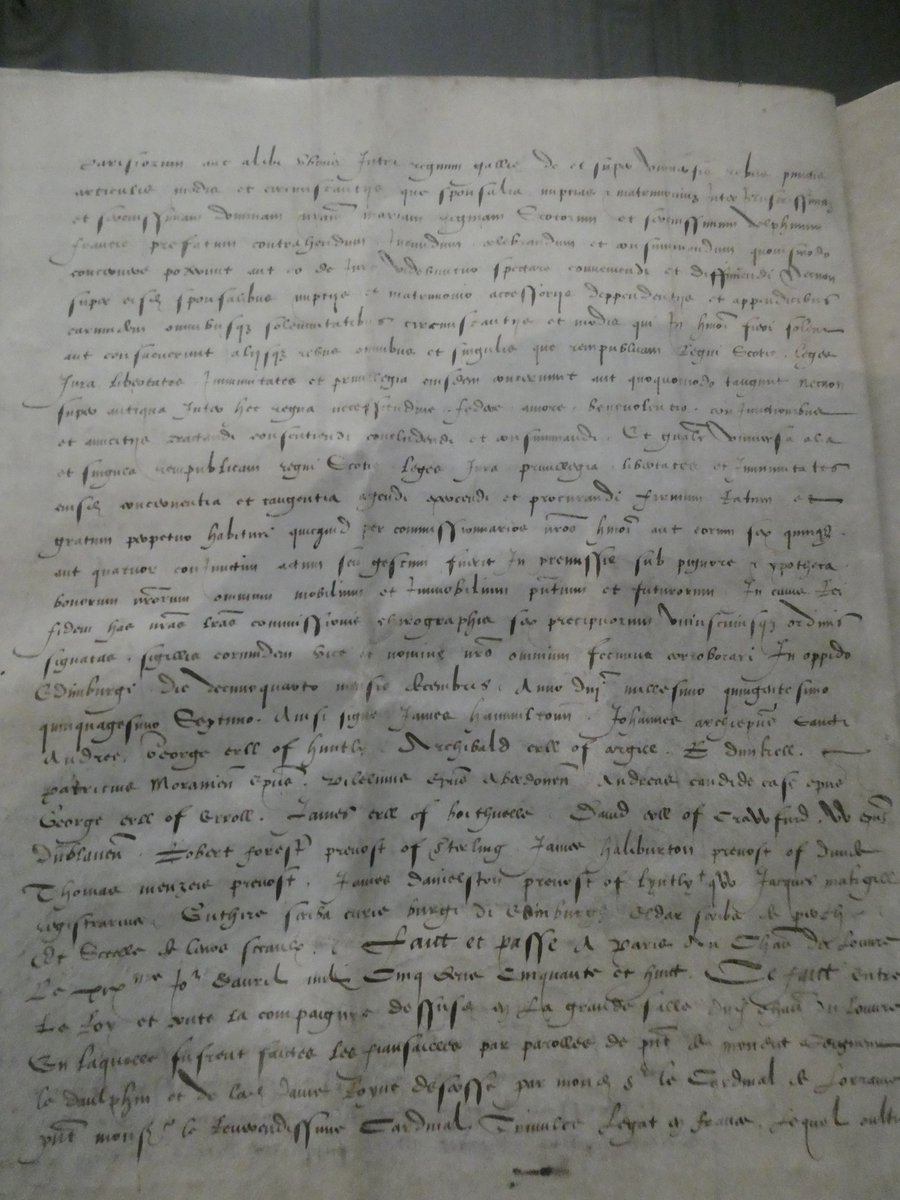 parisiorum aut alibi ubivis Inter regnum gallie de et super universis rebus punctis
articulis modis et circunstantiis que sponsalia nuptias et matrimonium Inter Illustrissimam
et serenissimam dominam nram mariam reginam Scotorum et serenissimum delphinum
francie prefatum contrahendum Ineundum celebrandum et consummandum quovismodo
concernere poterunt aut eo de Iure videbuntur spectare conveniendi et diffiniendi Necnon
super eisd sponsalibus nuptiis et matrimonio accessoriis deppendentiis et appendicibus
earumdem omnibusq solemnitatibus circunstantiis et modis qui In hmoi fieri solent
aut consueverunt aliisq rebus omnibus et singulis que rempublicam Regni Scotie leges
Jura libertates Immunitates et privilegia eiusdem concernunt aut quoquomodo tangunt necnon
super antiqua Inter hec regna necessitudine federe amore benevolentia conIunctionibus
et amicitiis tractandi consentiendi concludendi et consummandi. Et gnalr universa alia
et singula rempublicam regni Scotie leges Jura privilegia libertates et Immunitates
eiusd concernentia et tangentia agendi exercendi et procurandi firmum Ratum et
gratum perpetuo habituri quicquid per commissionarios nros hmoi aut eorum sex quinqz
aut quatuor conIunctim actum seu gestum fuerit In premissis sub pignore et ypotheca
bonorum nrorum omnium mobilium et Immobilium pntium et futurorum In cuius Rei
fidem has nras lras commissionis chirographis sex precipuorum uniuscuiusq ordinis
signatas sigillis eorumdem vice et nomine nro omnium fecimus corroborari In oppido
Edimburgi die decimoquarto mensis decembris. Anno dni millesimo quingentesimo
quinquagesimo Septimo. Ainsi signe James Hammiltoun. Johannes archieps Sancti
Andree. George erll of huntly. Archibald erll of argill. R dunkell.
patricius Moravien eps. Vilelmus eps Abredonen Andreas candide case eps
George erll of Erroll. James erll of boithuelle. David erll of Crawfurd. W eps
dunblanen. Robert forest prevost of Sterling. James haliburton prevost of dunde
Thomas menzeis prevost. James danielston prevost of lyntlytquo Jacques makgill
registrarius. Guthire scriba curie burgi de Edimburg
Et Scelle de Faict et passe A paris ou Chau du louvre
Le xixme Jor davril mil Cinq cens Cinquante et huit. Ce faict entre
le Roy et toute la compaignie dessusd en la grande salle dud chau du louvre
En laquelle furent faictes les fiansailles par parolles de pnt de monsr Seigneur
le daulphin et de lad dame Royne descosse par mond sr le Cardinal de Lorraine
pnt monsr le Reverendissime Cardinal Trivulce Legat en france. Lequel oultre